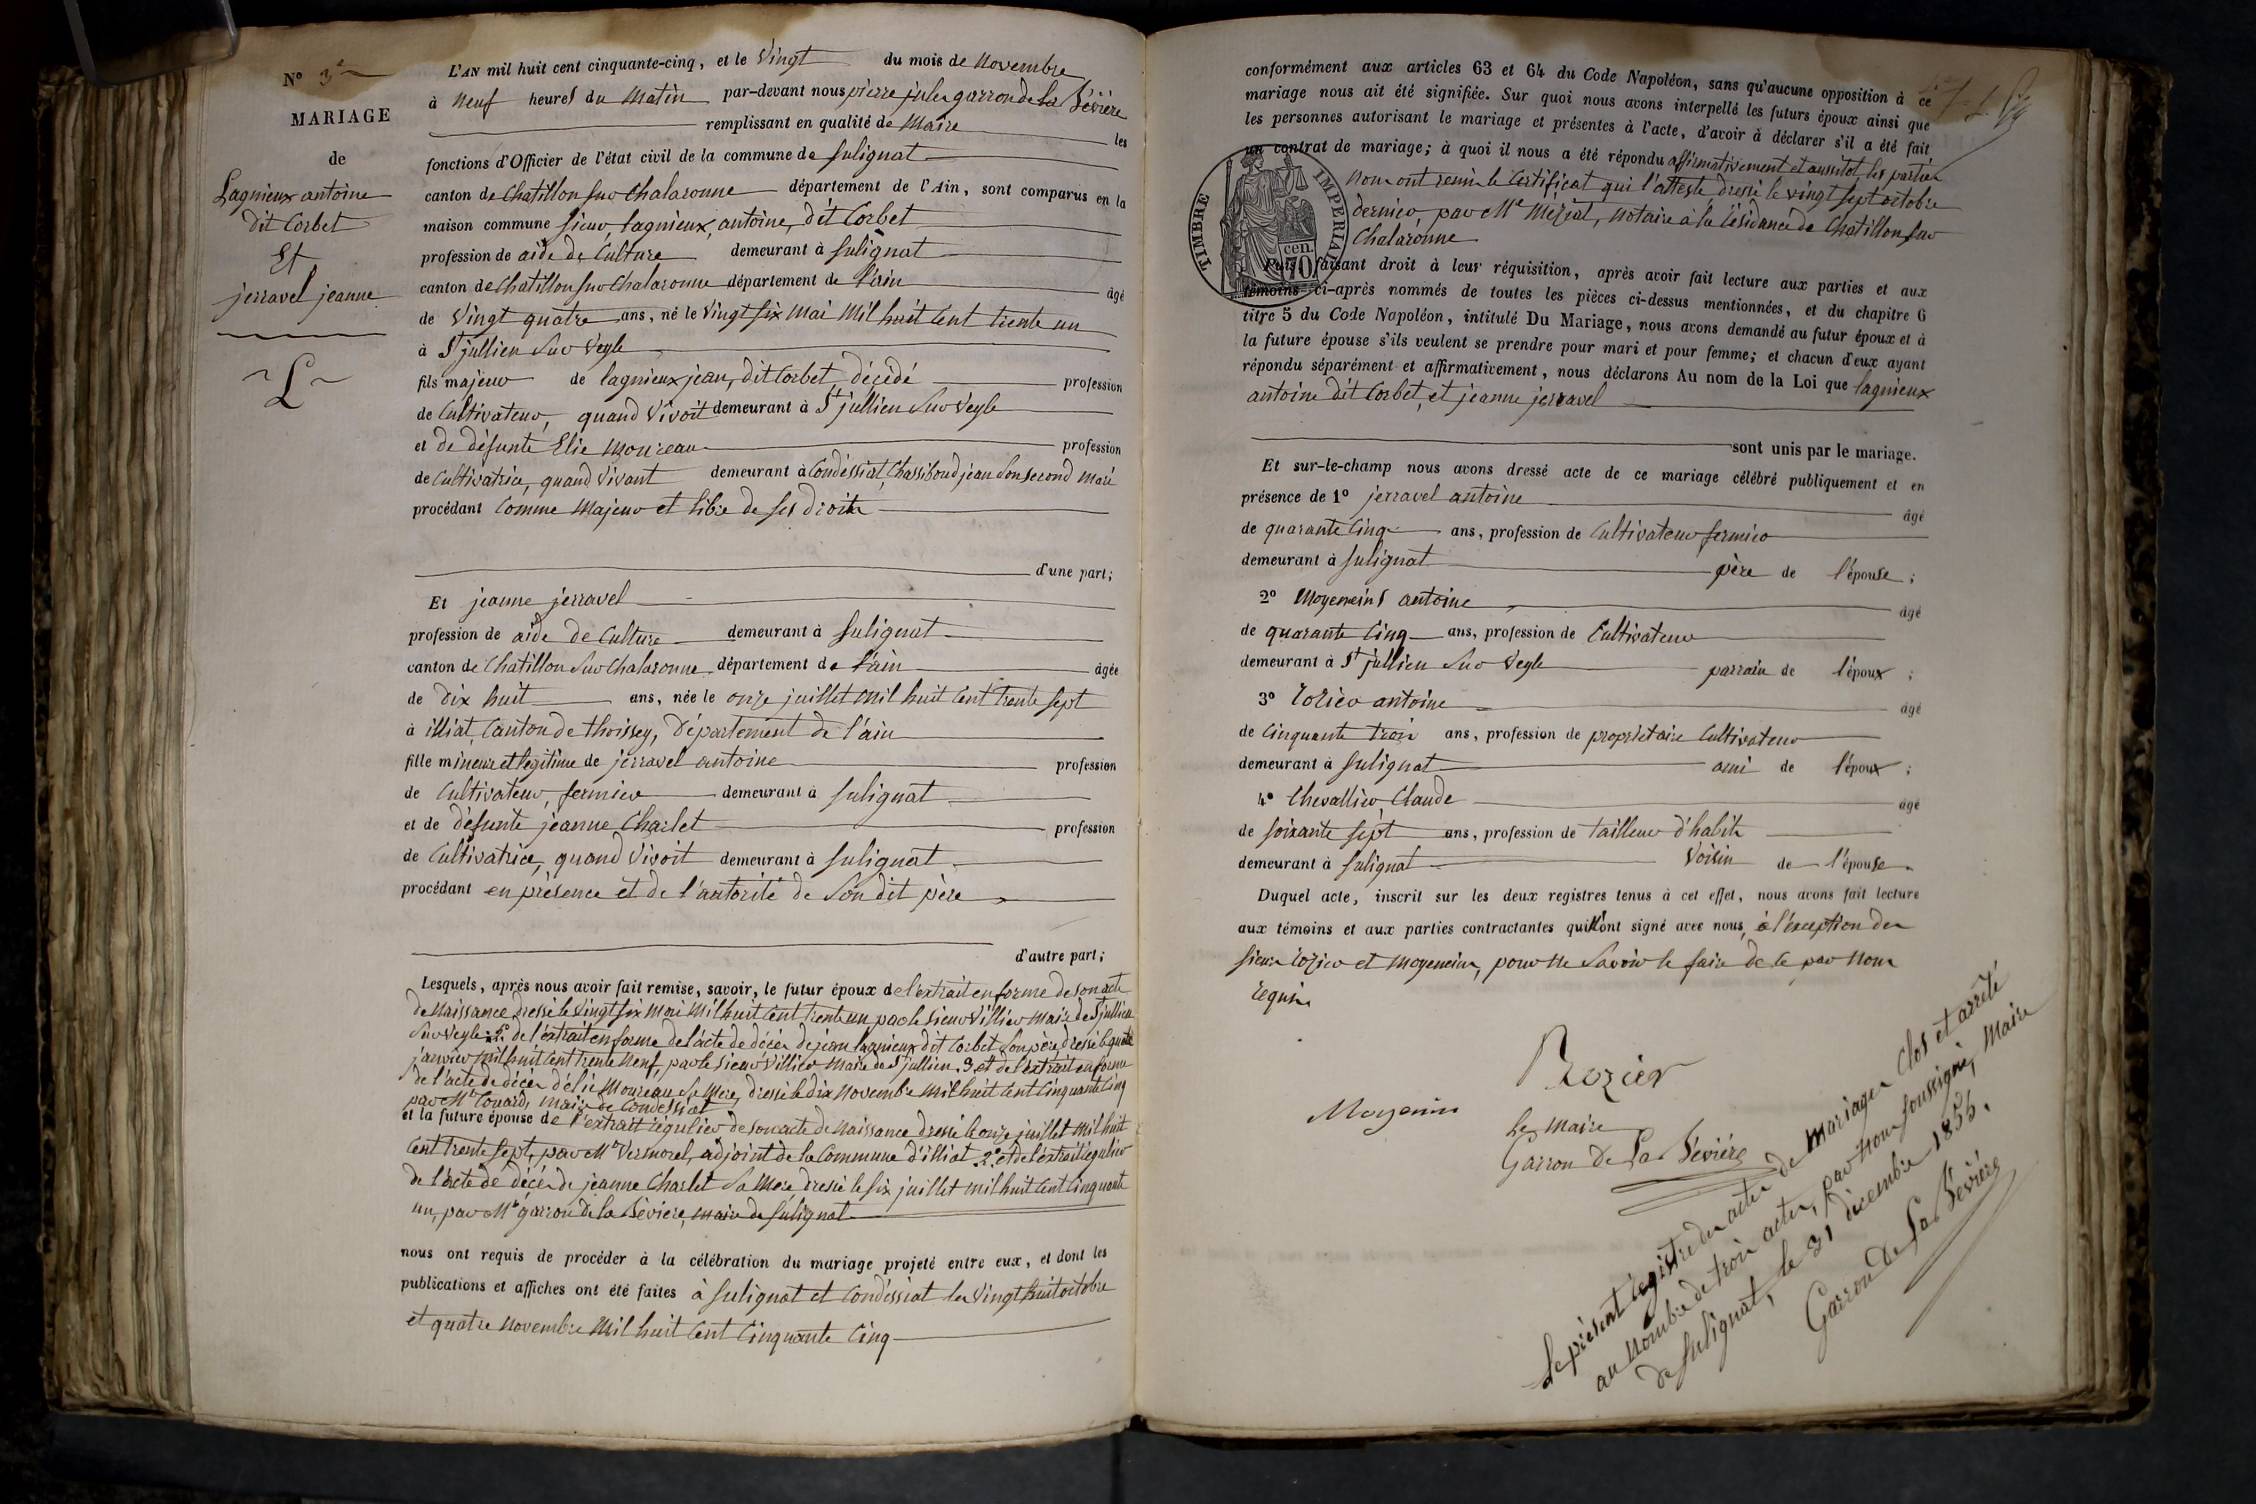 N° 3e
MARIAGE
de
Lagnieux antoine
dit Corbet
Et
jerravel jeanne
L
L'AN mil huit cent cinquante-cinq, et le Vingt du mois de Novembre
à Neuf heures du Matin par-devant nous pierre jules garron de la Sévière
remplissant en qualité de Maire les
fonctions d'Officier de l'état civil de la commune de Sulignat
canton de Chatillon sur Chalaronne département de l'Ain, sont comparus en la
maison commune sieur lagnieux, antoine, dit Corbet
profession de aide de Culture demeurant à Sulignat
canton de Chatillon sur Chalaronne département de l'ain âgé
de Vingt quatre ans, né le Vingt six Mai Mil huit Cent trente un
à St jullien Sur Veyle
fils majeur de lagnieux jean, dit Corbet, décédé profession
de Cultivateur, quand Vivoit demeurant à St jullien Sur Veyle
et de défunte Elie Moureau profession
de Cultivatrice, quand Vivant demeurant à Condéssiat, Chassiboud jean Son second Mari
procédant Comme Majeur et libre de ses droits
d'une part;
Et jeanne jerravel
profession de aide de Culture demeurant à Sulignat
canton de Chatillon Sur Chalaronne département de l'ain âgée
de Dix huit ans, née le onze juillet Mil huit Cent trente sept
à illiat, Canton de thoissey, Département de l'ain
fille mineure et légitime de jerravel antoine profession
de Cultivateur, fermier demeurant à Sulignat
et de défunte jeanne Charlet profession
de Cultivatrice, quand Vivoit demeurant à Sulignat
procédant en présence et de l'autorité de Son dit père
d'autre part;
Lesquels, après nous avoir fait remise, savoir, le futur époux de l'extrait en forme de son acte
de Naissance dressé le Vingt six Mai Mil huit Cent trente un par le Sieur Villier Maire de St jullien
Sur Veyle 2° de l'extrait en forme de l'acte de décès de jean lagnieux dit Corbet Son père dressé le quatre
janvier Mil huit Cent trente Neuf par le Sieur Villier Maire de St jullien. 3° et de l'extrait en forme
de l'acte de décès d'élie Moureau Sa Mère, dressé le dix Novembre Mil huit Cent Cinquante Cinq
par Mr Maire de Condéssiat
et la future épouse de l'extrait régulier de son acte de Naissance dressé le onze juillet Mil huit
Cent trente sept, par Mr Vermorel, adjoint de la Commune d'illiat 2° et de l'extrait régulier
de l'acte de décès de jeanne Charlet Sa Mère dressé le six juillet Mil huit Cent Cinquante
un, par Mr garron de la Sévière, Maire de Sulignat
nous ont requis de procéder à la célébration du mariage projeté entre eux, et dont les
publications et affiches ont été faites à Sulignat et Condéssiat les Vingt huit octobre
et quatre Novembre Mil huit Cent Cinquante Cinq
conformément aux articles 63 et 64 du Code Napoléon, sans qu'aucune opposition à ce
mariage nous ait été signifiée. Sur quoi nous avons interpellé les futurs époux ainsi que
les personnes autorisant le mariage et présentes à l'acte, d'avoir à déclarer s'il a été fait
un contrat de mariage; à quoi il nous a été répondu affirmativement et aussitot les parties
Nous ont remis le Certificat qui l'atteste dressé le vingt sept octobre
dernier, par Me Méziat, Notaire à la Résidance de Chatillon sur
Chalaronne
TIMBRE IMPERIAL
70 cen.
Puis faisant droit à leur réquisition, après avoir fait lecture aux parties et aux
témoins ci-après nommés de toutes les pièces ci-dessus mentionnées, et du chapitre 6
titre 5 du Code Napoléon, intitulé Du Mariage, nous avons demandé au futur époux et à
la future épouse s'ils veulent se prendre pour mari et pour femme; et chacun d'eux ayant
répondu séparément et affirmativement, nous déclarons Au nom de la Loi que lagnieux
antoine dit Corbet, et jeanne jerravel
sont unis par le mariage.
Et sur-le-champ nous avons dressé acte de ce mariage célébré publiquement et en
présence de 1° jerravel antoine âgé
de quarante Cinq ans, profession de Cultivateur fermier
demeurant à Sulignat père de l'épouse;
2° Moyeneins antoine âgé
de quarante Cinq ans, profession de Cultivateur
demeurant à St jullien Sur Veyle parrain de l'époux;
3° rozier antoine âgé
de Cinquante trois ans, profession de propriétaire Cultivateur
demeurant à Sulignat ami de l'époux;
4° Chevallier Claude âgé
de Soixante sept ans, profession de tailleur d'habits
demeurant à Sulignat Voisin de l'épouse.
Duquel acte, inscrit sur les deux registres tenus à cet effet, nous avons fait lecture
aux témoins et aux parties contractantes qui l'ont signé avec nous, à l'éxception des
Sieurs rozier et Moyeneins, pour Ne Savoir le faire de ce par Nous
requis
Rozier
Moyenin
Le Maire
Garron De La Sévière
Le présent registre des actes de Mariages Clos et arrêté
au Nombre de trois actes, par Nous Soussigné, Maire
de Sulignat, le 31 décembre 1855.
Garron De La Sévière